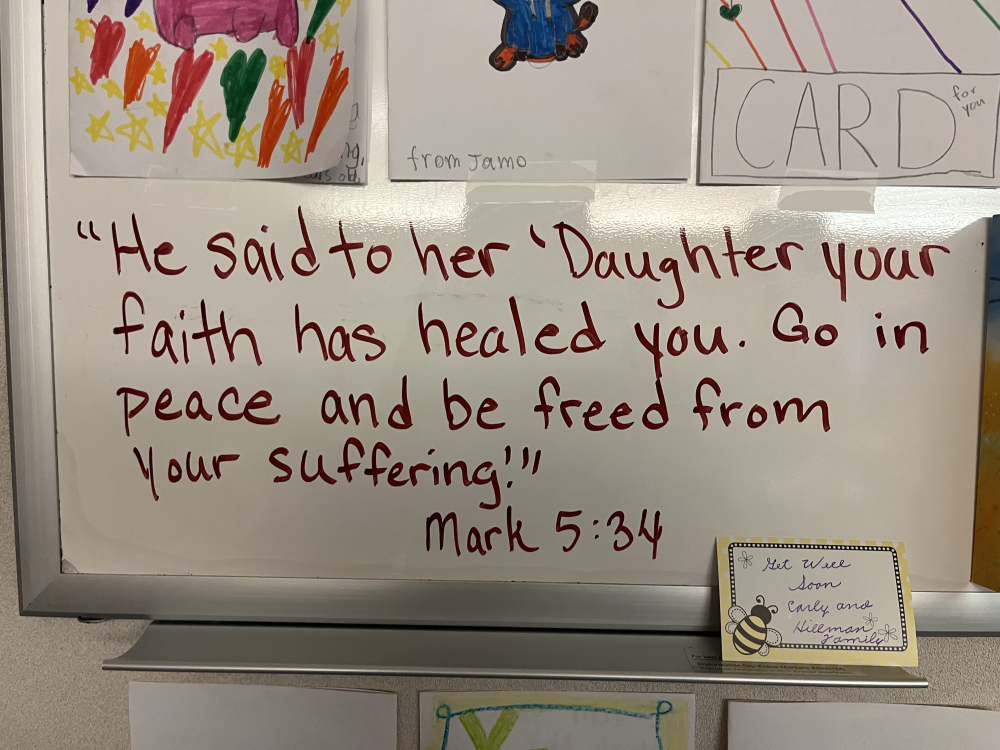 from Jamo
CARD
for
you
"He said to her 'Daughter your
faith has healed you. Go in
peace and be freed from
your suffering!'"
Mark 5:34
Get Well
Soon
Carly and
Hillman
Family